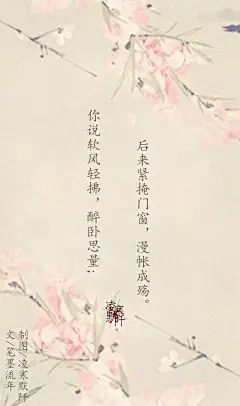 你说软风轻拂，醉卧思量；
后来紧掩门窗，漫帐成殇。
制图/凌寒默阡
文/笔墨流年